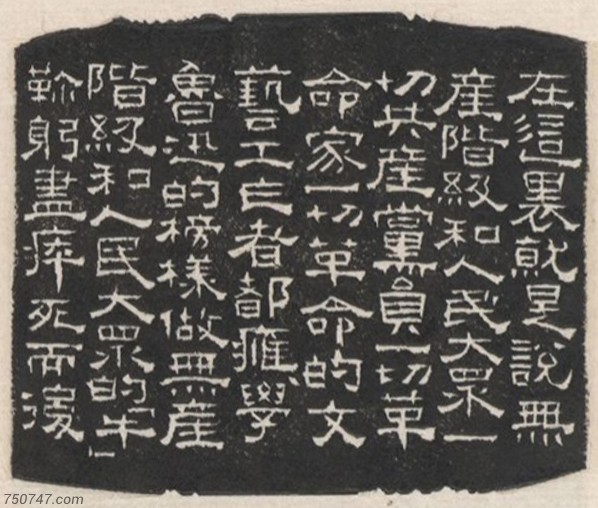 在這裏就是說無
産階級和人民大眾一
切共産黨員一切革
命家一切革命的文
藝工作者都應學
魯迅的榜樣做無産
階級和人民大眾的牛
鞠躬盡瘁死而後
750747.com